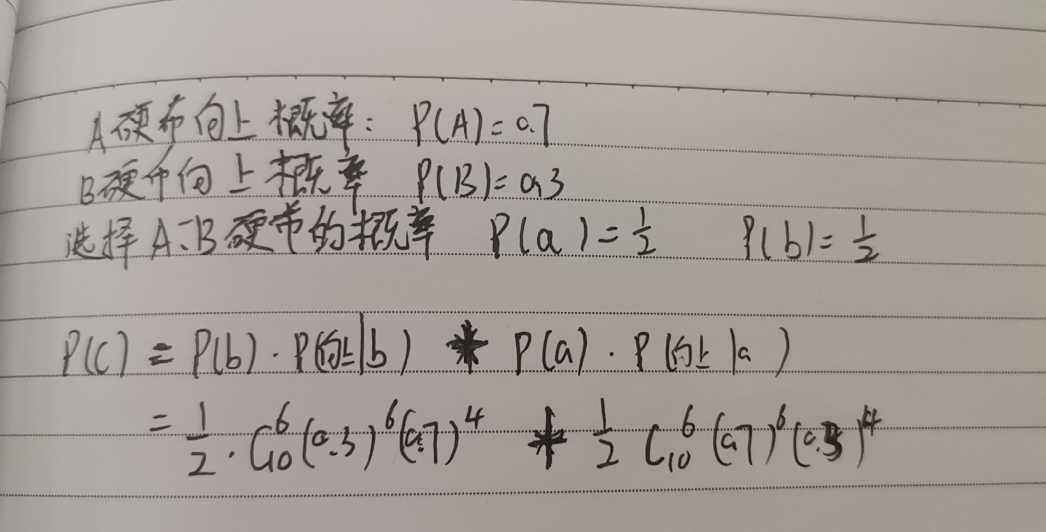 A硬币向上概率: P(A)=0.7
B硬币向上概率 P(B)=0.3
选择A、B硬币的概率 P(a)=1/2 P(b)=1/2
P(C) = P(b)·P(向上|b) * P(a)·P(向上|a)
= 1/2·C₁₀⁶(0.3)⁶(0.7)⁴ * 1/2 C₁₀⁶(0.7)⁶(0.3)⁴